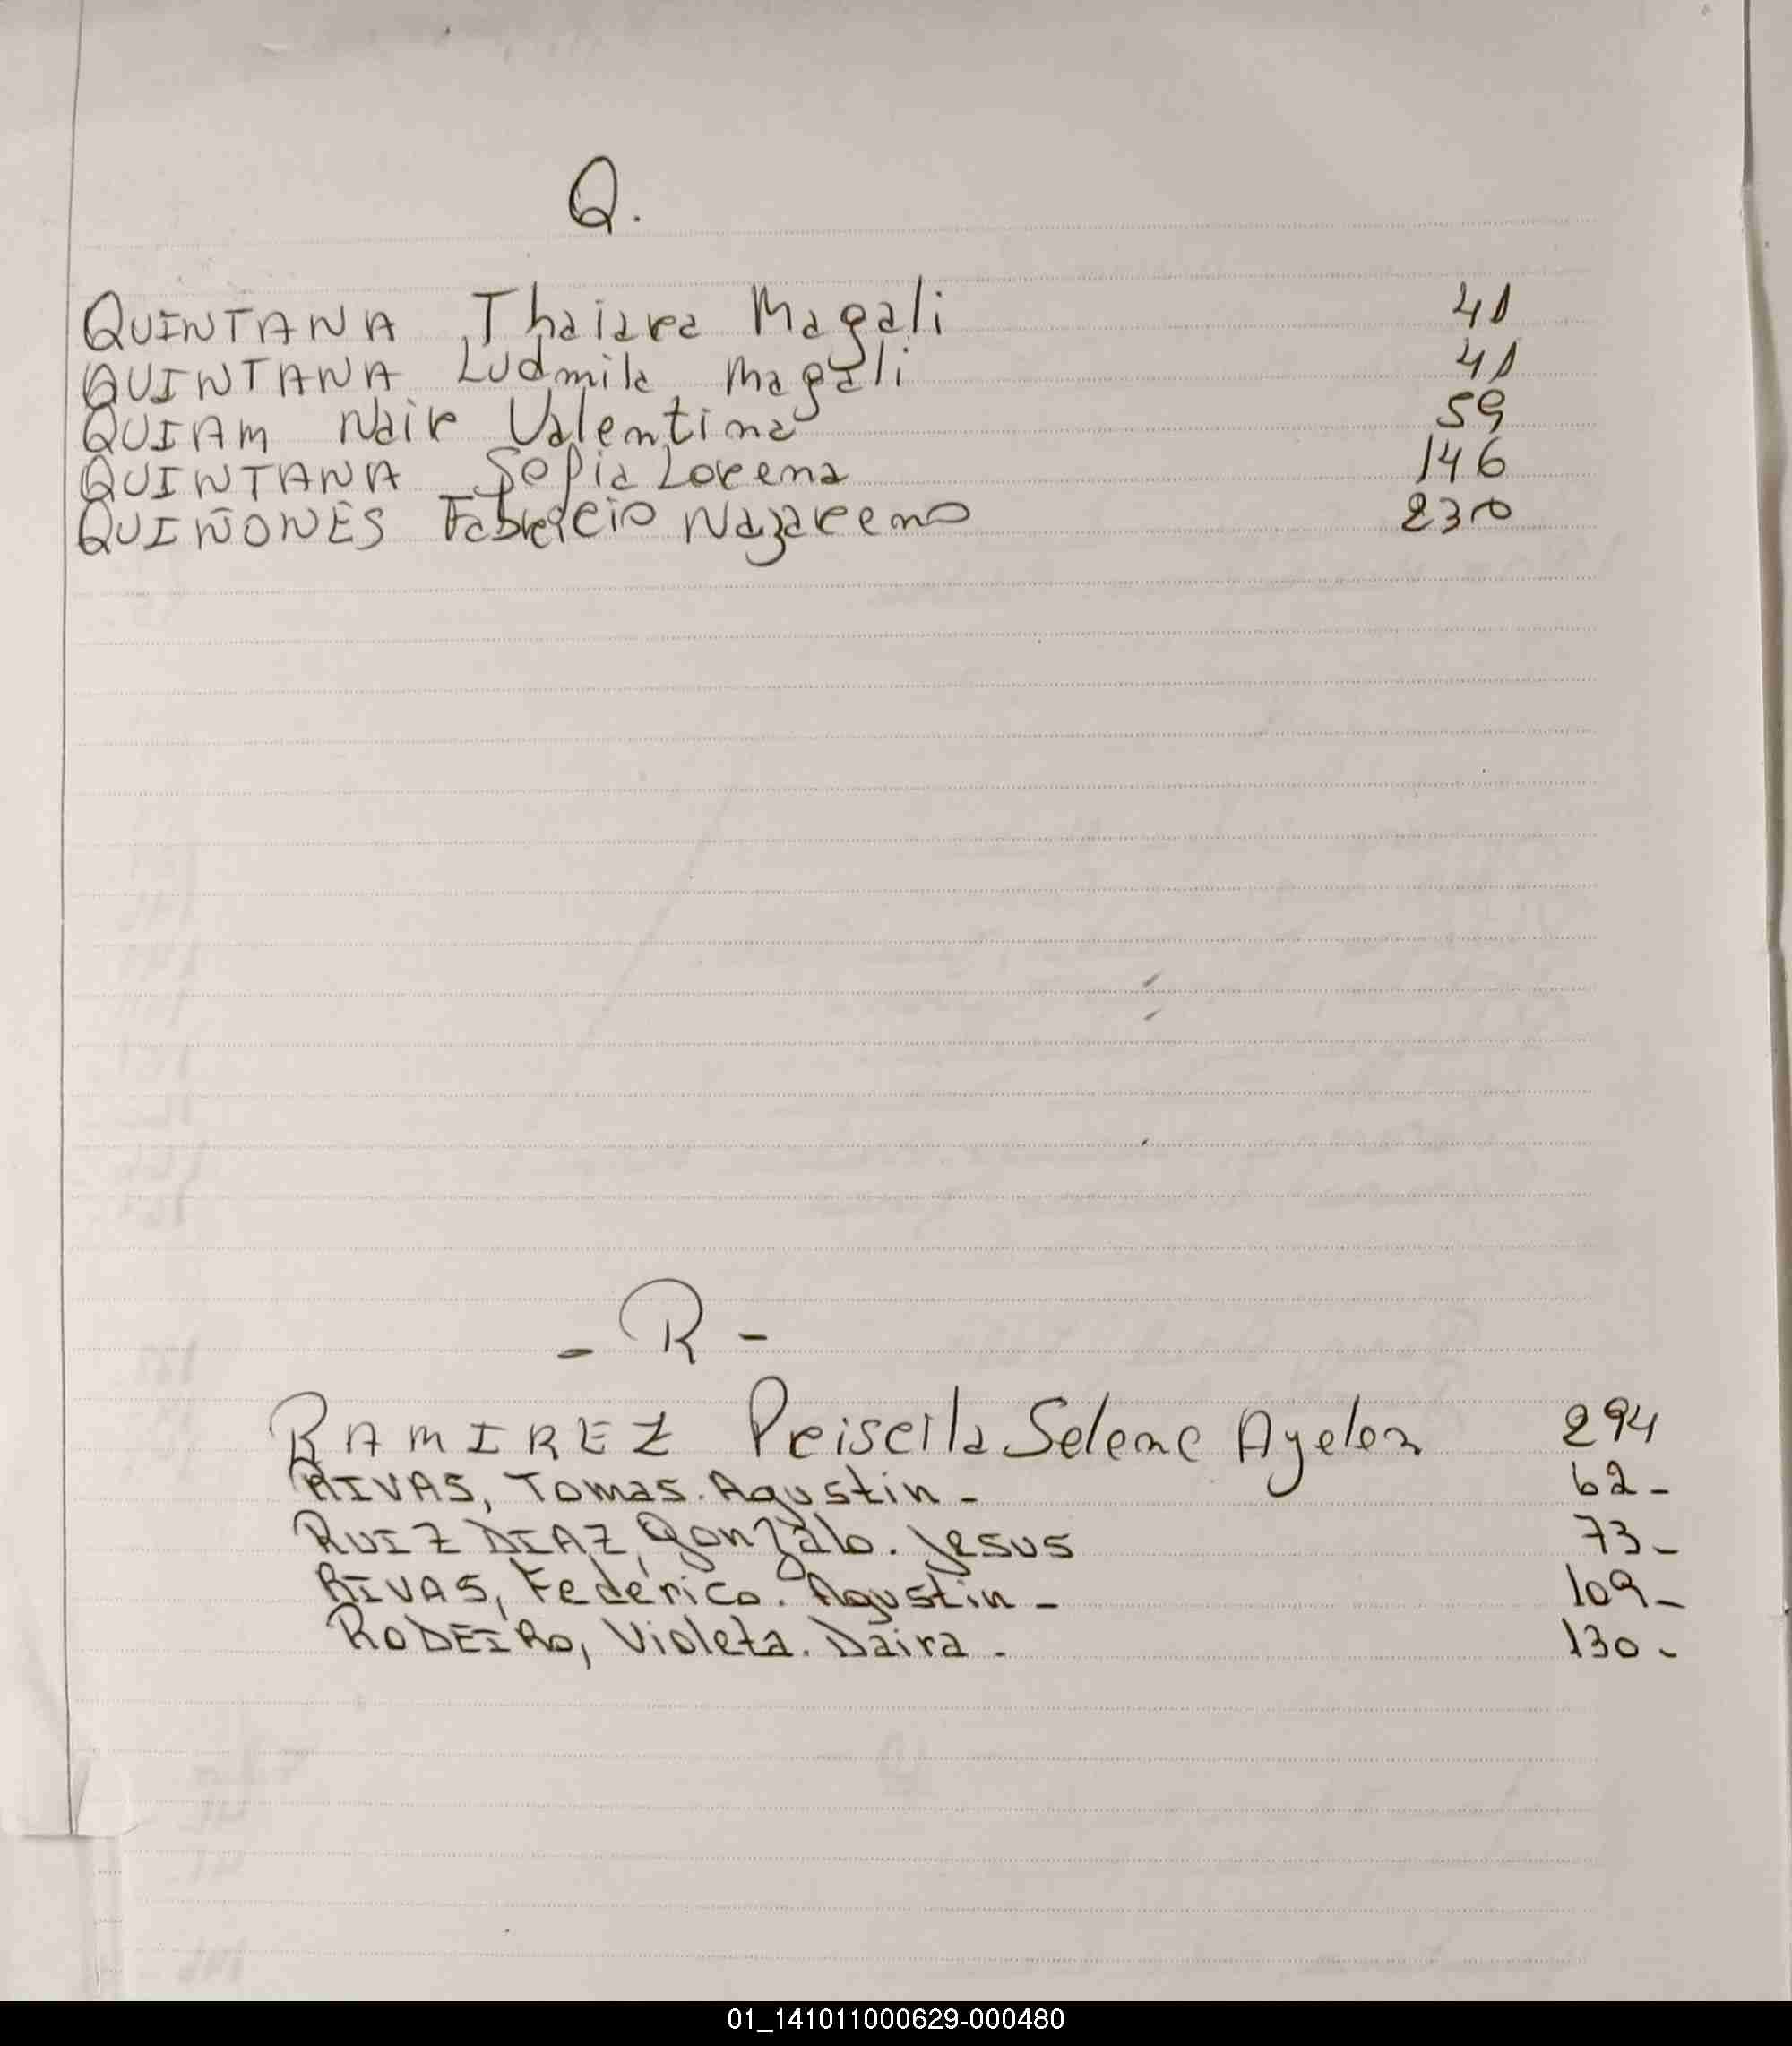 Q.
QUINTANA Thaiara Magali 41
QUINTANA Ludmila Magali 41
QUIAM Nair Valentina 59
QUINTANA Sofia Lorena 146
QUIÑONES Fabricio Nazareno 230
- R -
RAMIREZ Priscila Selene Ayelen 294
RIVAS, Tomas. Agustin - 62-
RUIZ DIAZ, Gonzalo. Jesus 73-
RIVAS, Federico. Agustin - 109-
RODEIRO, Violeta. Daira - 130-
01_141011000629-000480